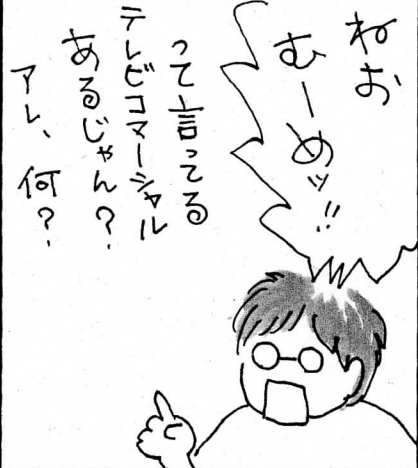 ねお
むーめッ!!
って言ってる
テレビコマーシャル
あるじゃん?
アレ、何?